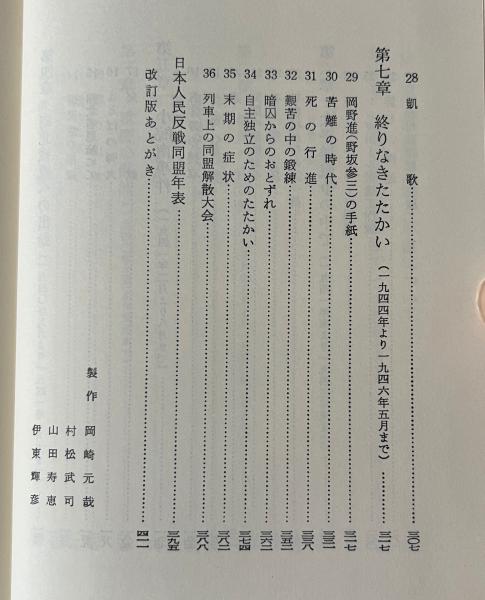 28 凱歌……三〇七
第七章 終りなきたたかい（一九四四年より一九四六年五月まで）……三一七
29 岡野進（野坂参三）の手紙……三一七
30 苦難の時代……三三一
31 死の行進……三三八
32 艱苦の中の鍛練……三五二
33 暗囚からのおとずれ……三六二
34 自主独立のためのたたかい……三七四
35 末期の症状……三八二
36 列車上の同盟解散大会……三八八
日本人民反戦同盟年表……三九五
改訂版あとがき……四一一
製作 岡崎元哉
村松武司
山田寿恵
伊東輝彦